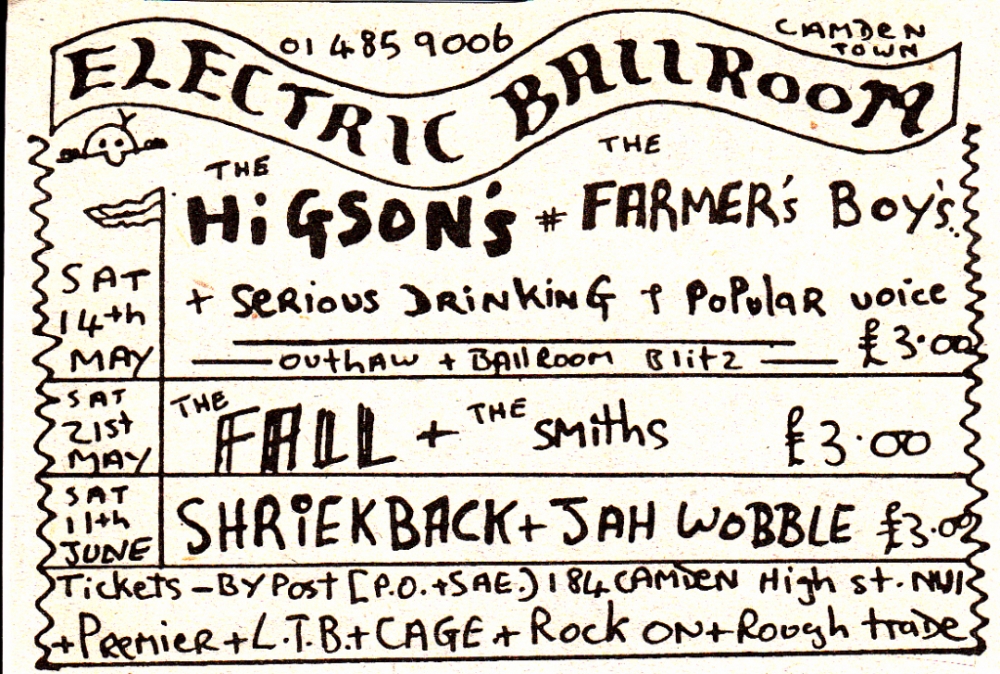 01 485 9006
CAMDEN
TOWN
ELECTRIC BALLROOM
THE HiGSON's # THE FARMER's BOY's..
SAT
14th
MAY
+ SERIOUS DRINKING + POPULAR VOICE
£3.00
OUTHAW + BALLROOM BLITZ
SAT
21st
MAY
THE FALL + THE SMiTHS £3.00
SAT
11th
JUNE
SHRiEKBACK + JAH WOBBLE £3.00
Tickets - BY POST [P.O. + SAE.) 184 CAMDEN High st. NW1
+ PREMIER + L.T.B. + CAGE + Rock ON + Rough trade